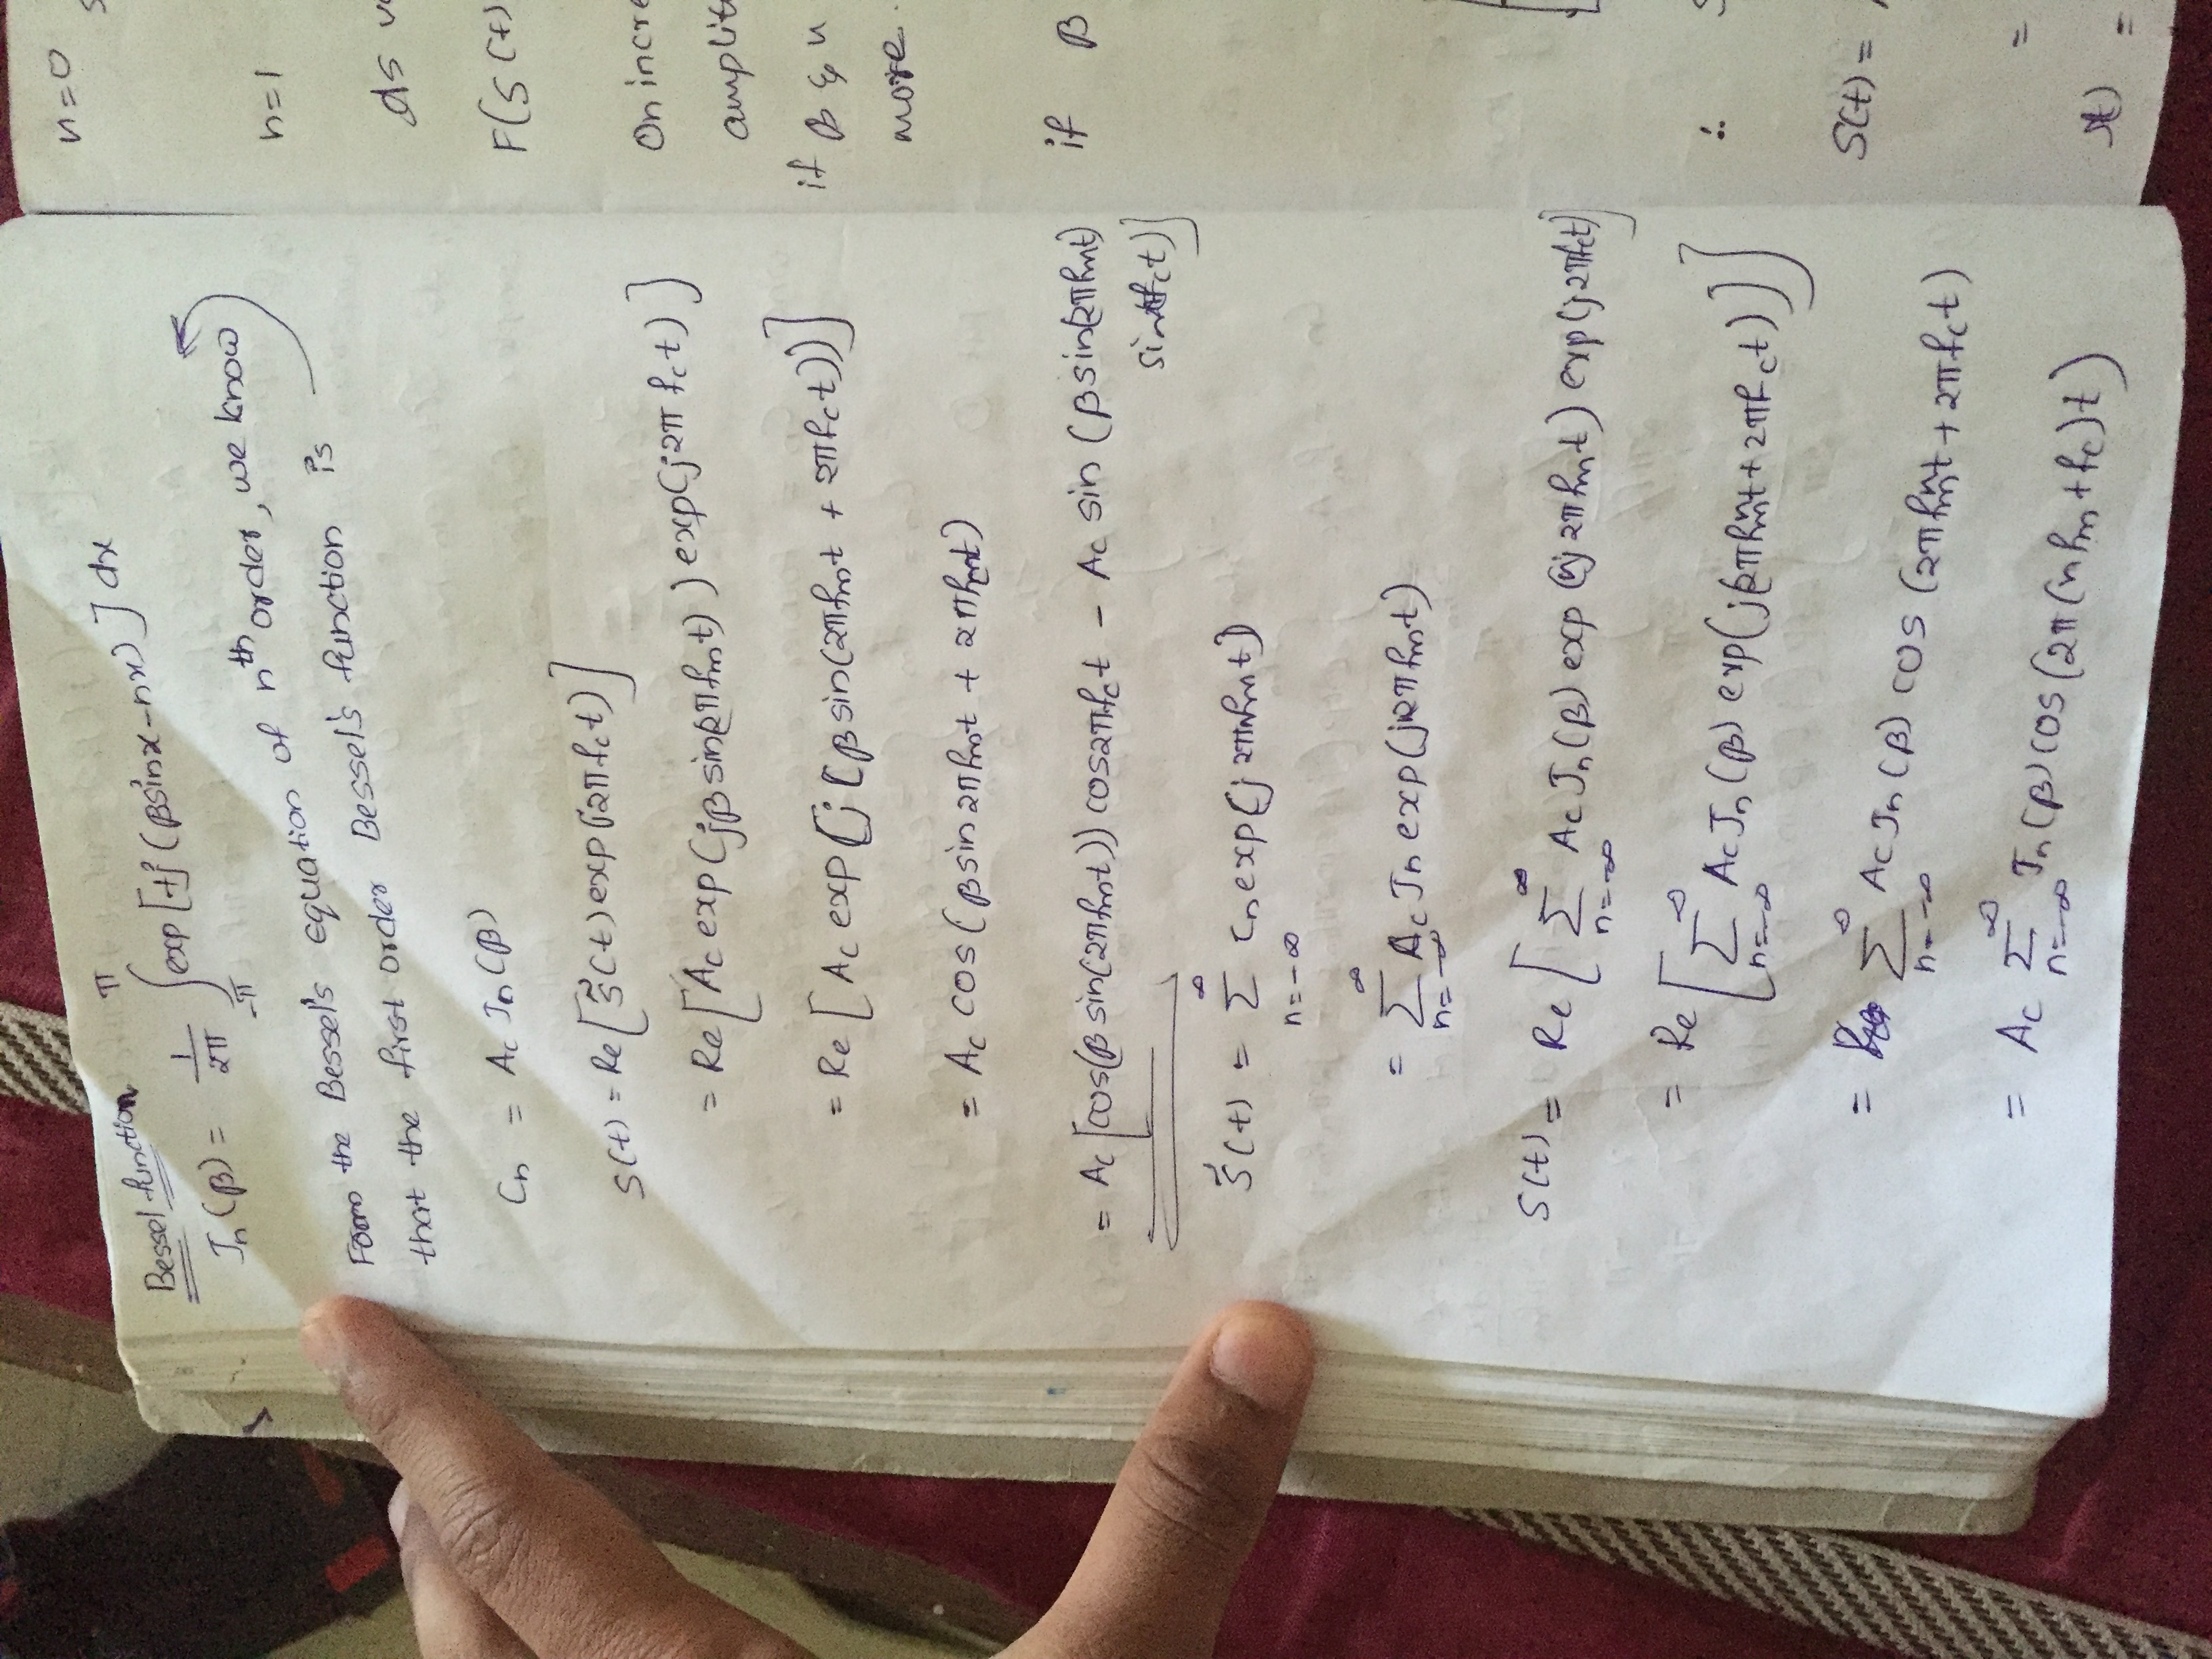 Bessel function
Jn(β) = 1/2π ∫_{-π}^{π} exp[+j(βsinx-nx)] dx
From the Bessel's Equation of nth order, we know
that the first order Bessel's function is
Cn = Ac Jn(β)
S(t) = Re[s̃(t) exp(j2πfct)]
= Re[Ac exp(jβsin(2πfmt)) exp(j2πfct)]
= Re[Ac exp[j[βsin(2πfmt + 2πfct))]
= Ac cos(βsin2πfmt + 2πfct)
= Ac[cos(βsin(2πfmt)) cos2πfct - Ac sin(βsin(2πfmt)
sin fct)]
s̃(t) = Σ_{n=-∞}^{∞} cn exp(j2πnfmt)
= Σ_{n=-∞}^{∞} Ac Jn exp(jn2πfmt)
S(t) = Re[Σ_{n=-∞}^{∞} Ac Jn(β) exp(nj2πfmt) exp(j2πfct)]
= Re[Σ_{n=-∞}^{∞} Ac Jn(β) exp(j(2πfmnt + 2πfct))]
= Σ_{n=-∞}^{∞} Ac Jn(β) cos(2πfmnt + 2πfct)
= Ac Σ_{n=-∞}^{∞} Jn(β) cos(2π(nfm+fc)t)
n=0
S
n=1
ds
F(S(t)
On incre
amplit
if β & n
more.
if β
∴ S
S(t) =
=
=